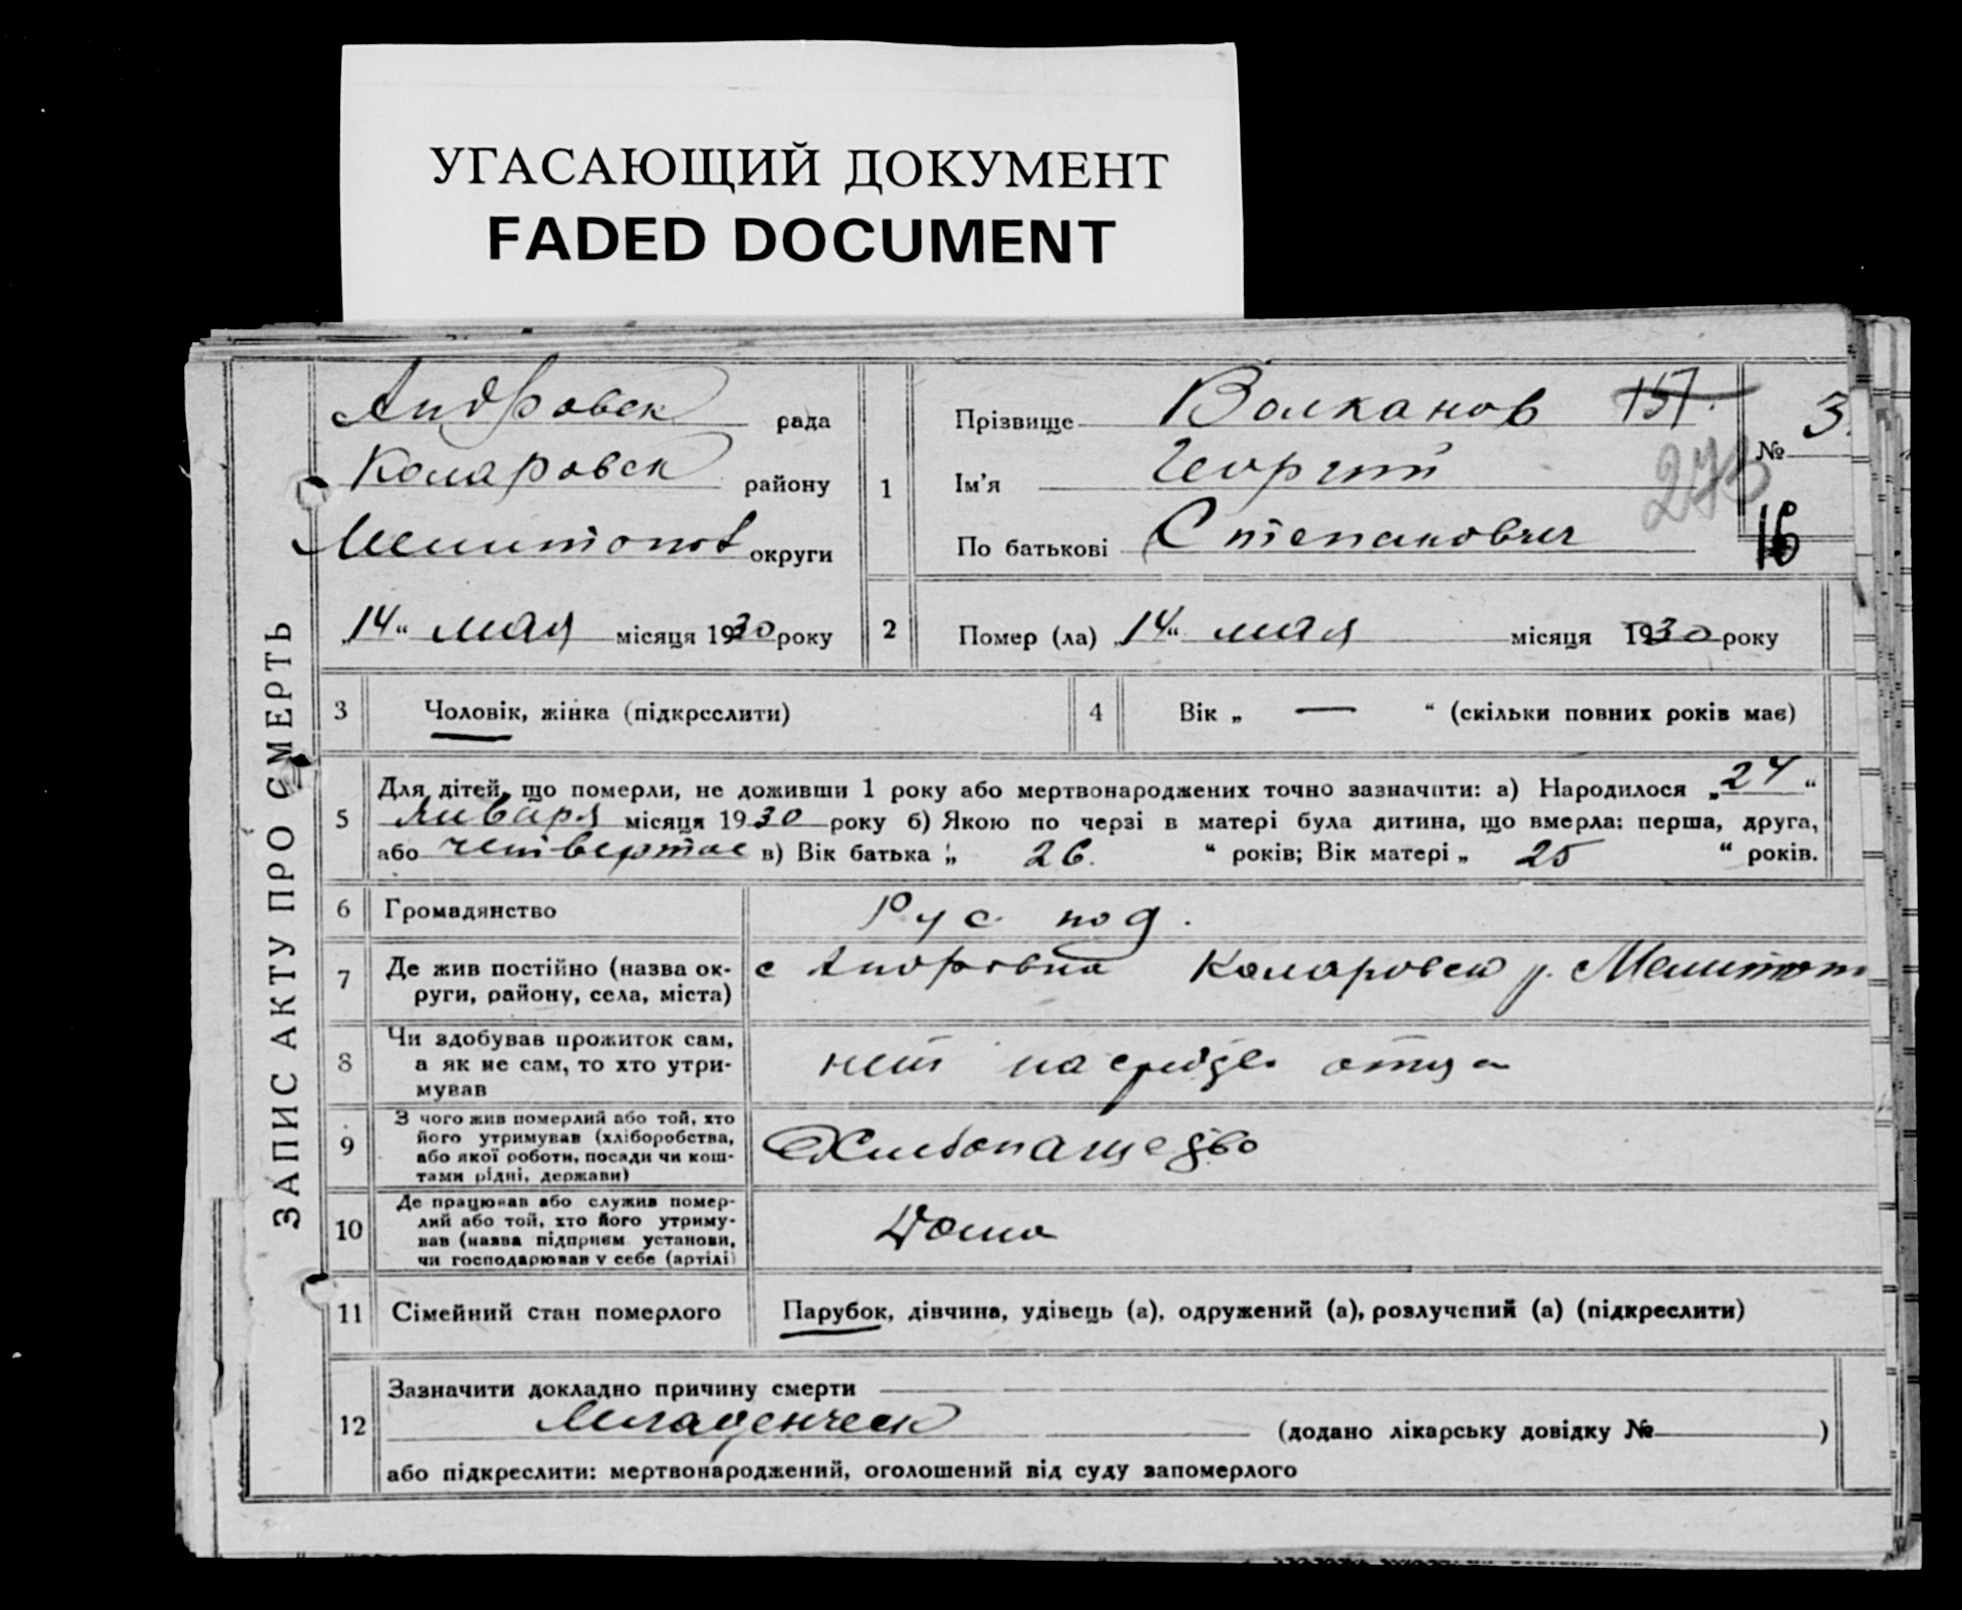 УГАСАЮЩИЙ ДОКУМЕНТ
FADED DOCUMENT
ЗАПИС АКТУ ПРО СМЕРТЬ
Андровск рада
Коларовск району
Мелитопол округи
„14“ мая місяця 1930 року
1
Прізвище Волканов 157.
Ім'я Георгий
По батькові Степанович
№ 3.
273
16
2
Помер (ла) „14“ мая місяця 1930 року
3 Чоловік, жінка (підкреслити)
4 Вік „ — “ (скільки повних років має)
5
Для дітей, що померли, не доживши 1 року або мертвонароджених точно зазначити: а) Народилося „24“
января місяця 1930 року б) Якою по черзі в матері була дитина, що вмерла: перша, друга,
або четвертое в) Вік батька „ 26. “ років; Вік матері „ 25 “ років.
6 Громадянство Рус под.
7 Де жив постійно (назва ок-
руги, району, села, міста)
с Андровка Коларовск р. Мелитоп
8 Чи здобував прожиток сам,
а як не сам, то хто утри-
мував
нет на средсв отца
9 З чого жив померлий або той, хто
його утримував (хліборобства,
або якої роботи, посади чи кош-
тами рідні, держави)
Хлебопашество
10 Де працював або служив помер-
лий або той, хто його утриму-
вав (назва підприєм установи,
чи господарював у себе (артілі)
Дома
11 Сімейний стан померлого Парубок, дівчина, удівець (а), одружений (а), розлучений (а) (підкреслити)
12 Зазначити докладно причину смерти
Младенческ (додано лікарську довідку № )
або підкреслити: мертвонароджений, оголошений від суду запомерлого